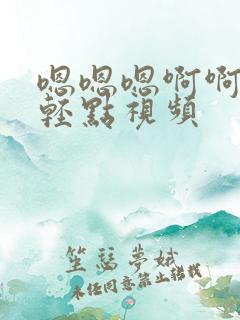 嗯嗯嗯啊啊
輕點視頻
笙瑟夢斌
未经同意禁止搭载